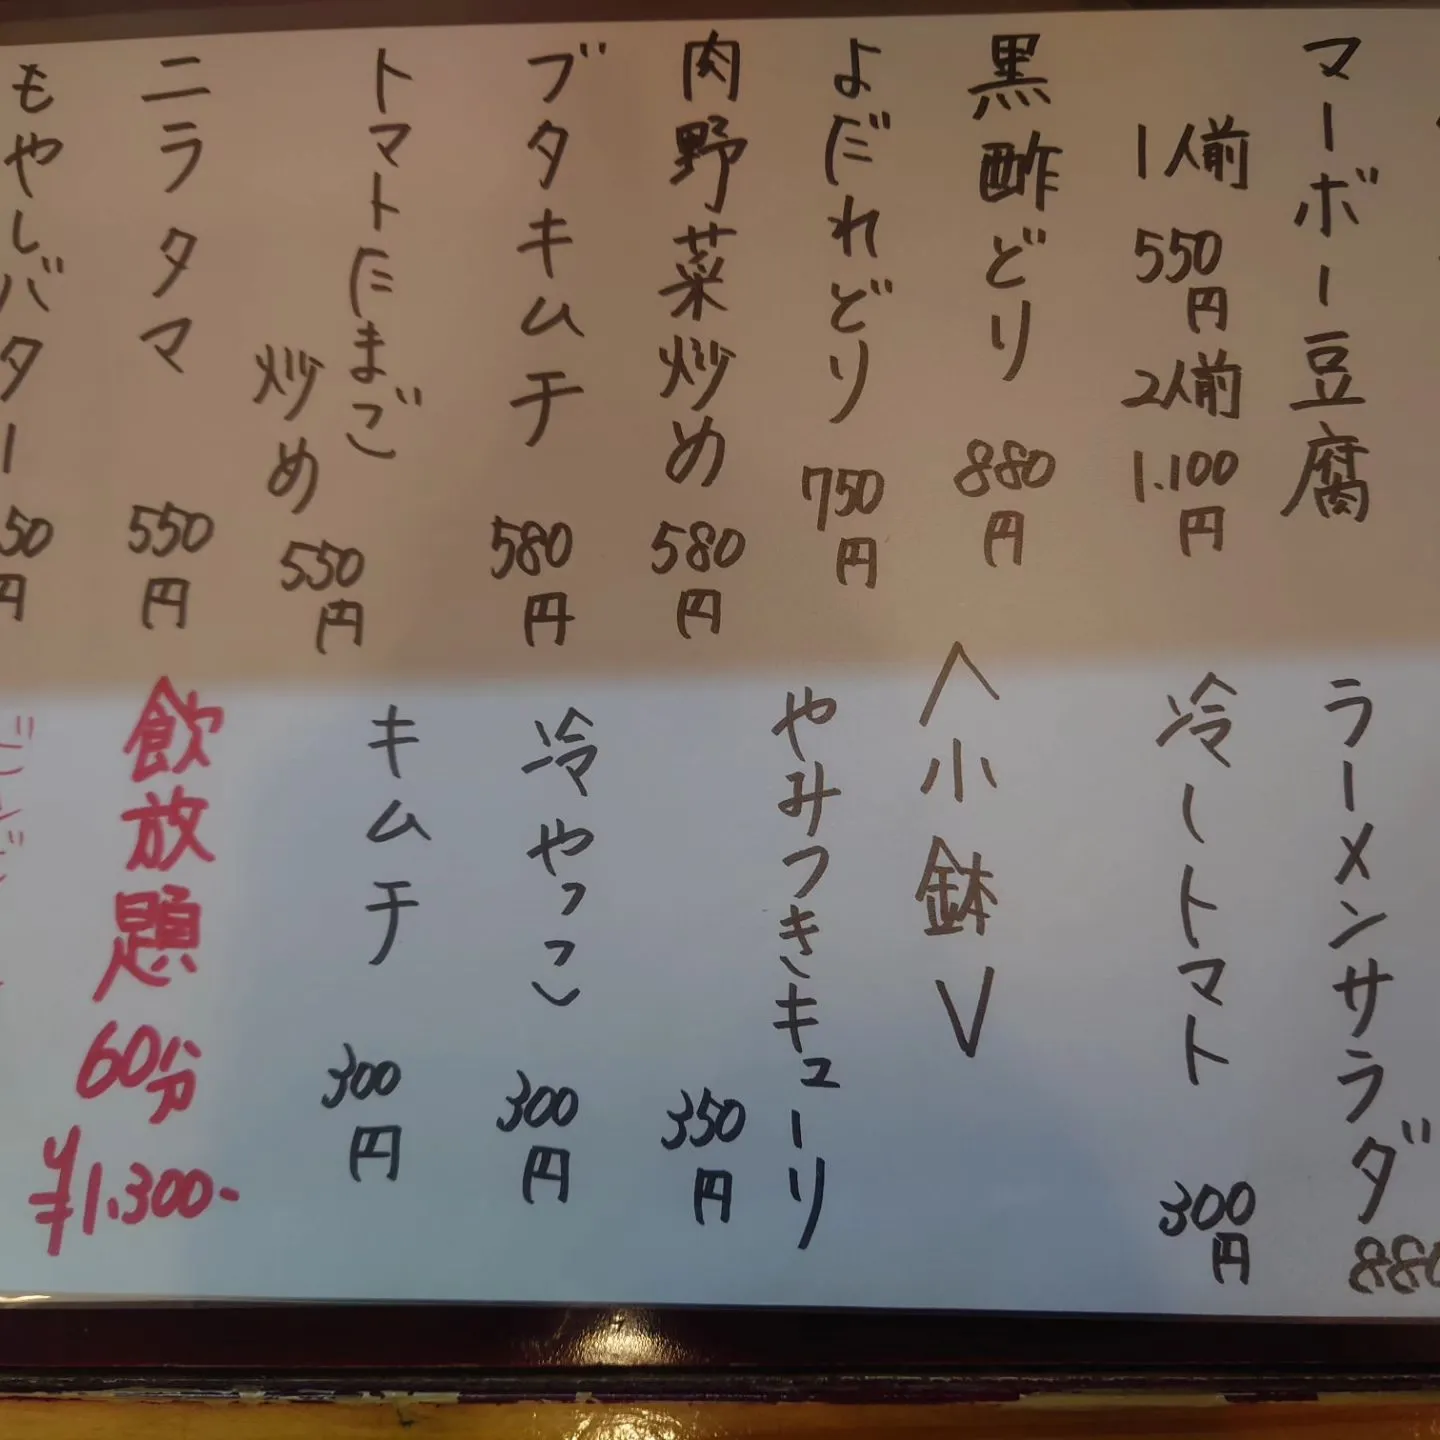 マーボー豆腐
1人前
550円
2人前
1.100円
黒酢どり
880円
よだれどり
750円
肉野菜炒め
580円
ブタキムチ
580円
トマトたまご
炒め
550円
ニラタマ
550円
もやしバター
50円
ラーメンサラダ
880
冷しトマト
300円
<小鉢>
やみつきキューリ
350円
冷やっこ
300円
キムチ
300円
飲放題
60分
¥1.300-